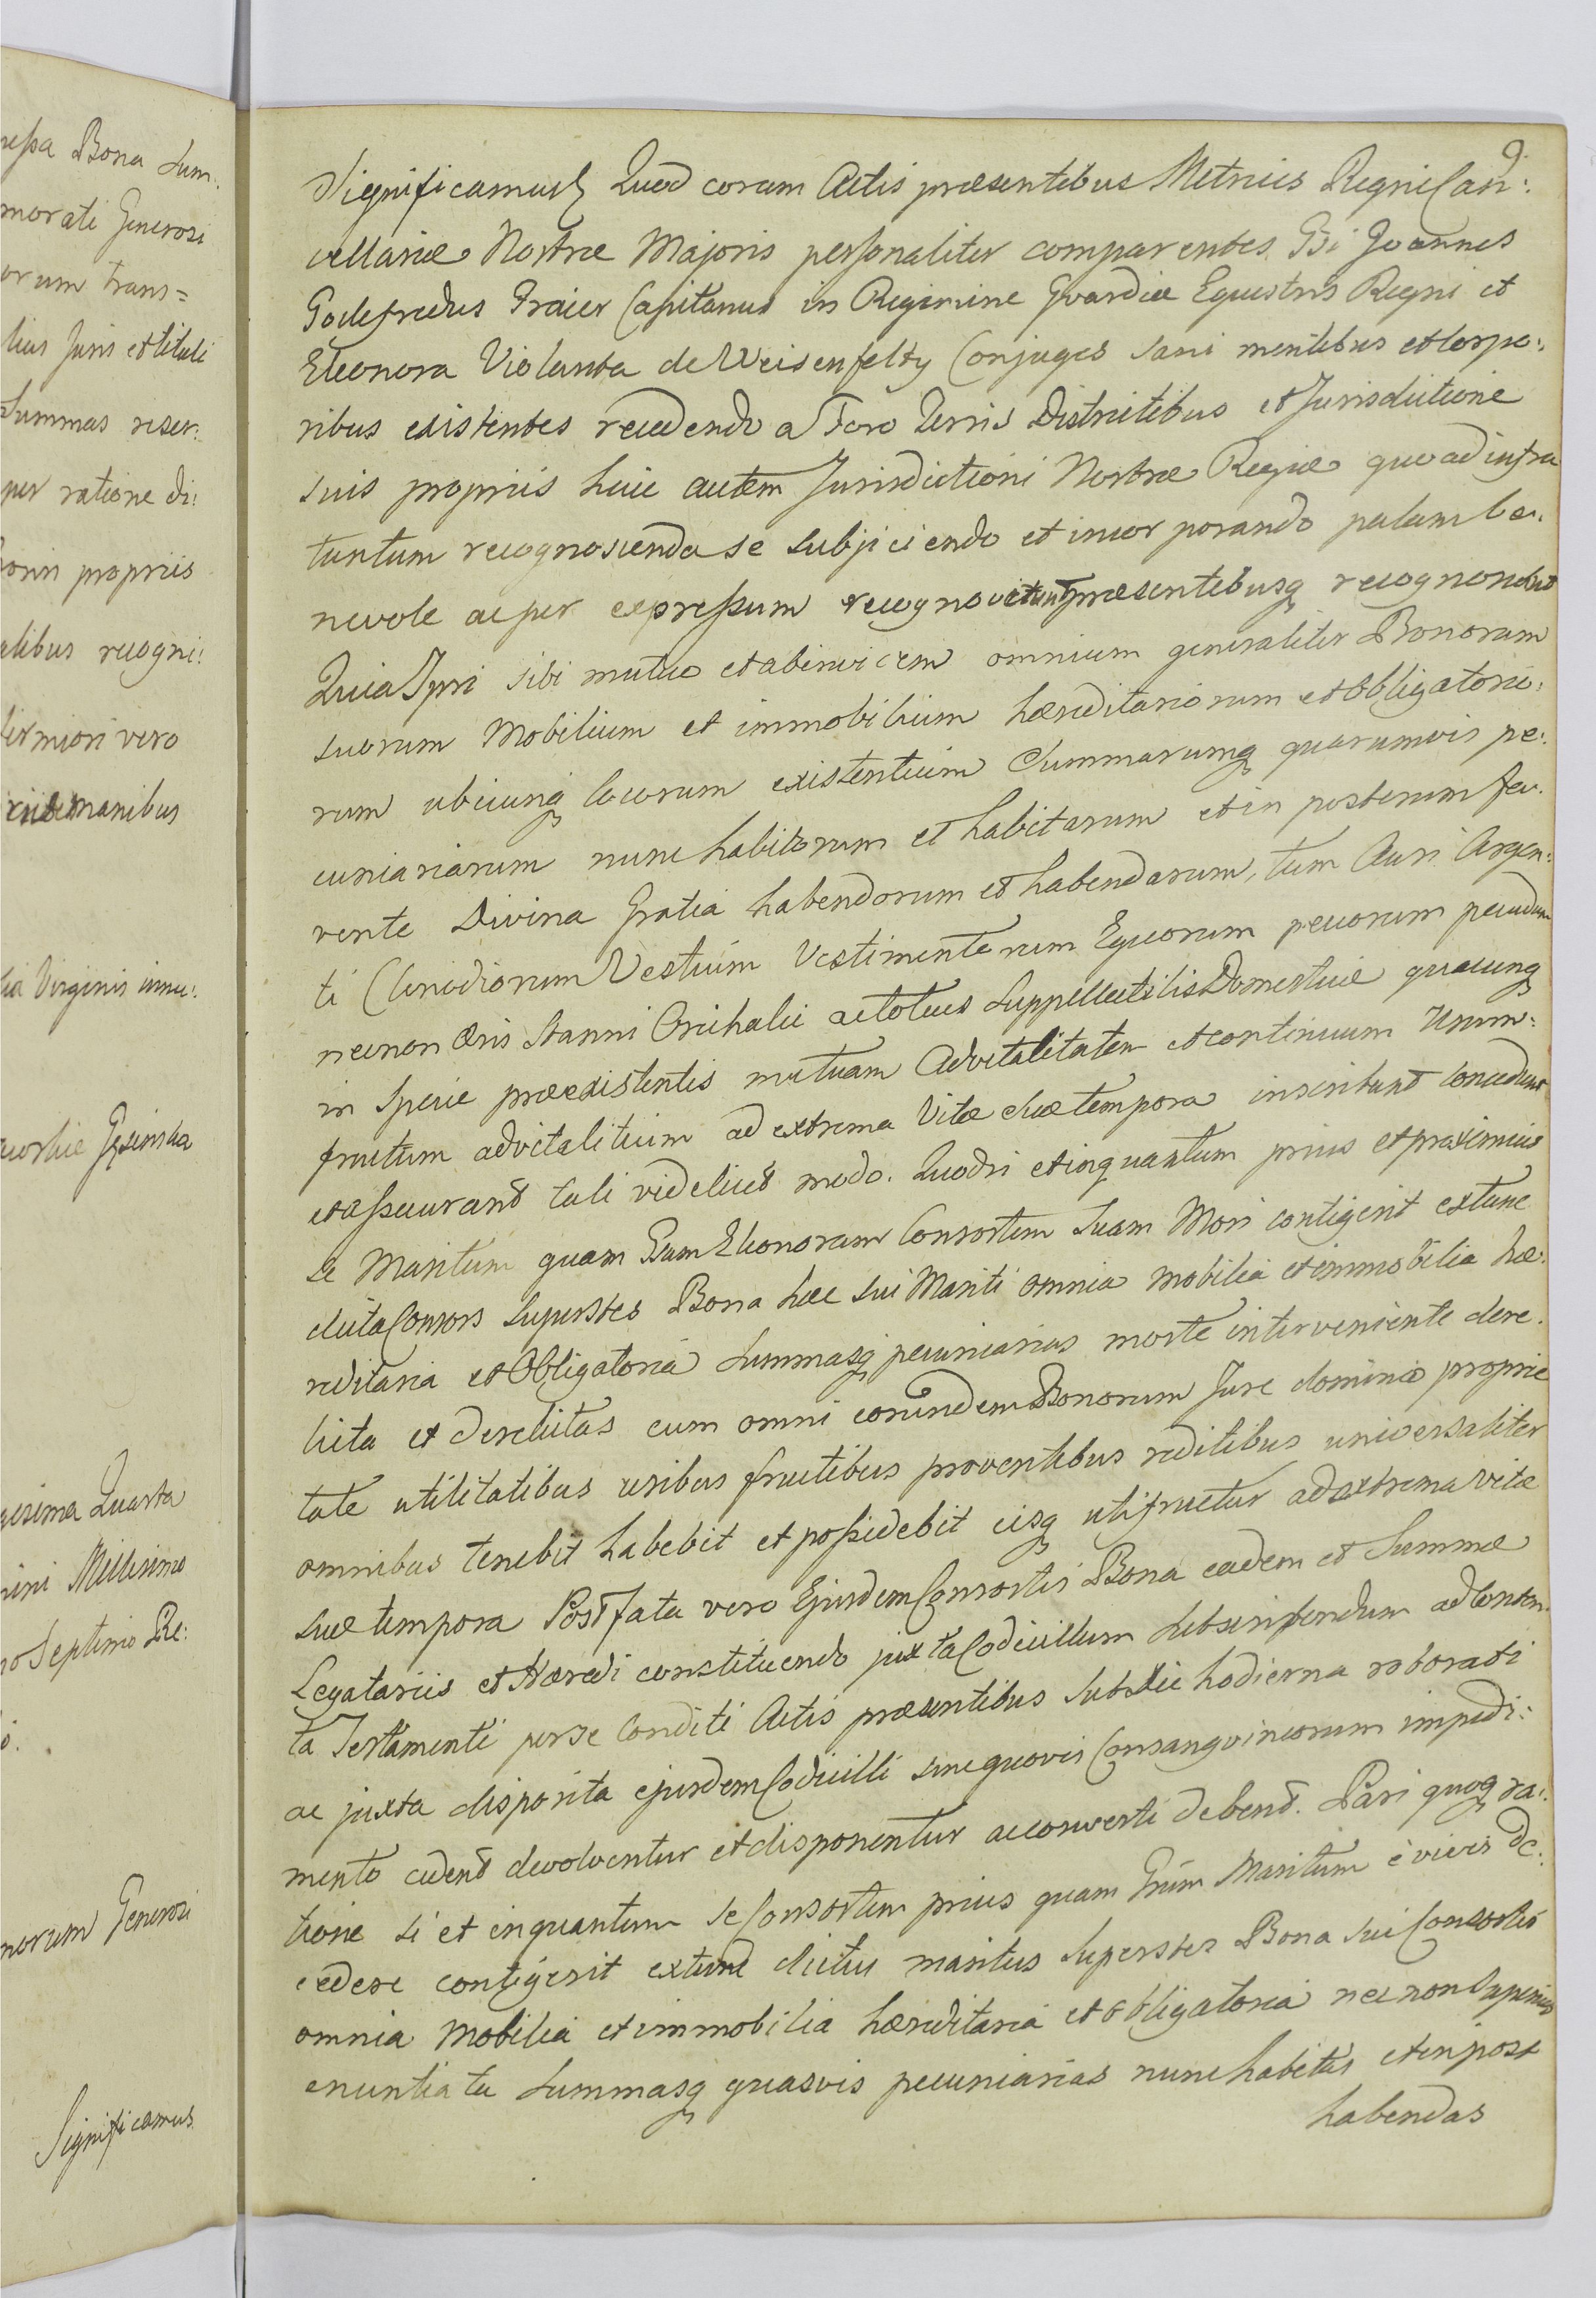 ressa Bona Sum:
morati Generosi
orum trans=
lius Juris et tituli
Summas reser:
per ratione di:
propriis
alibus recogni:
vero
manibus
Virginis
Quarta
Millesimo
Septimo Re:
norum Generosi
Significamus
9.
Significamus Quod coram Actis præsentibus Metrices Regni Can:
cellariæ Nostræ Majoris personaliter comparentes Gsi Joannes
Godefredus Fraier Capitaneus in Regimine Gvardiæ Equestris Regni et
Eleonora Violanta de Weisenfelty Conjuges sani mentibus et Corpo:
ribus existentes recedendo a Foro Terris Districtibus et Jurisdictione
suis propriis huic autem Jurisdictioni Nostræ Regiæ quo ad infra
tantum recognoscenda se subjiciendo et incorporando palam be:
nevole ac per expressum recognoverunt præsentibusq recognoscunt
Quia Ipsi sibi mutuo et abinvicem omnium generaliter Bonorum
suorum Mobilium et immobilium hæreditariorum et Obligatorio:
rum ubicunq locorum existentium Summarumq quarumvis pe:
cuniariarum nunc habitorum et habitarum et in posterum fa:
vente Divina Gratia habendorum et habendarum, tum Auri Argen:
ti Clenodiorum Vestium Vestimentorum Equorum pecorum pecudum
necnon Æris Stanni Orichalci ac totius Suppellectilis Domesticæ quacunq
in Specie præexistentis mutuam Advitalitatem et continuum Usum:
fructum advitalitium ad extrema Vitæ suæ tempora inscribunt concedunt
et assecurant tali videlicet modo. Quod si et inquantum prius et proximius
se Maritum quam Gsam Eleonoram Consortem Suam Mori contigerit extunc
dicta Consors superstes Bona hæc sui Mariti omnia mobilia et immobilia hæ:
reditaria et Obligatoria Summasq pecuniarias morte interveniente dere:
licta et derelictas cum omni eorundem Bonorum Jure dominio proprie
tate utilitatibus usibus fructibus proventibus reditibus universaliter
omnibus tenebit habebit et possidebit eisq utifruetur ad extrema vitæ
suæ tempora Post fata vero Ejusdem Consortis Bona eadem et Summæ
Legatariis et Hæredi constituendo juxta Codicillum subscribendum ad Conten:
ta Testamenti per se Conditi Actis præsentibus sub die hodierna roborati
ac juxta disposita ejusdem Codicilli sine quovis Consangvineorum impedi:
mento cedent devolventur et disponentur ac converti debent. Pari quoq ra:
tione si et inquantum se Consortem prius quam Gsum Maritum è vivis de:
cedere contigerit extunc dictus maritus superstes Bona sui Consortis
omnia Mobilia et immobilia hæreditaria et Obligatoria nec non superius
enuntiata Summasq quasvis pecuniarias nunc habitas et in post
habendas